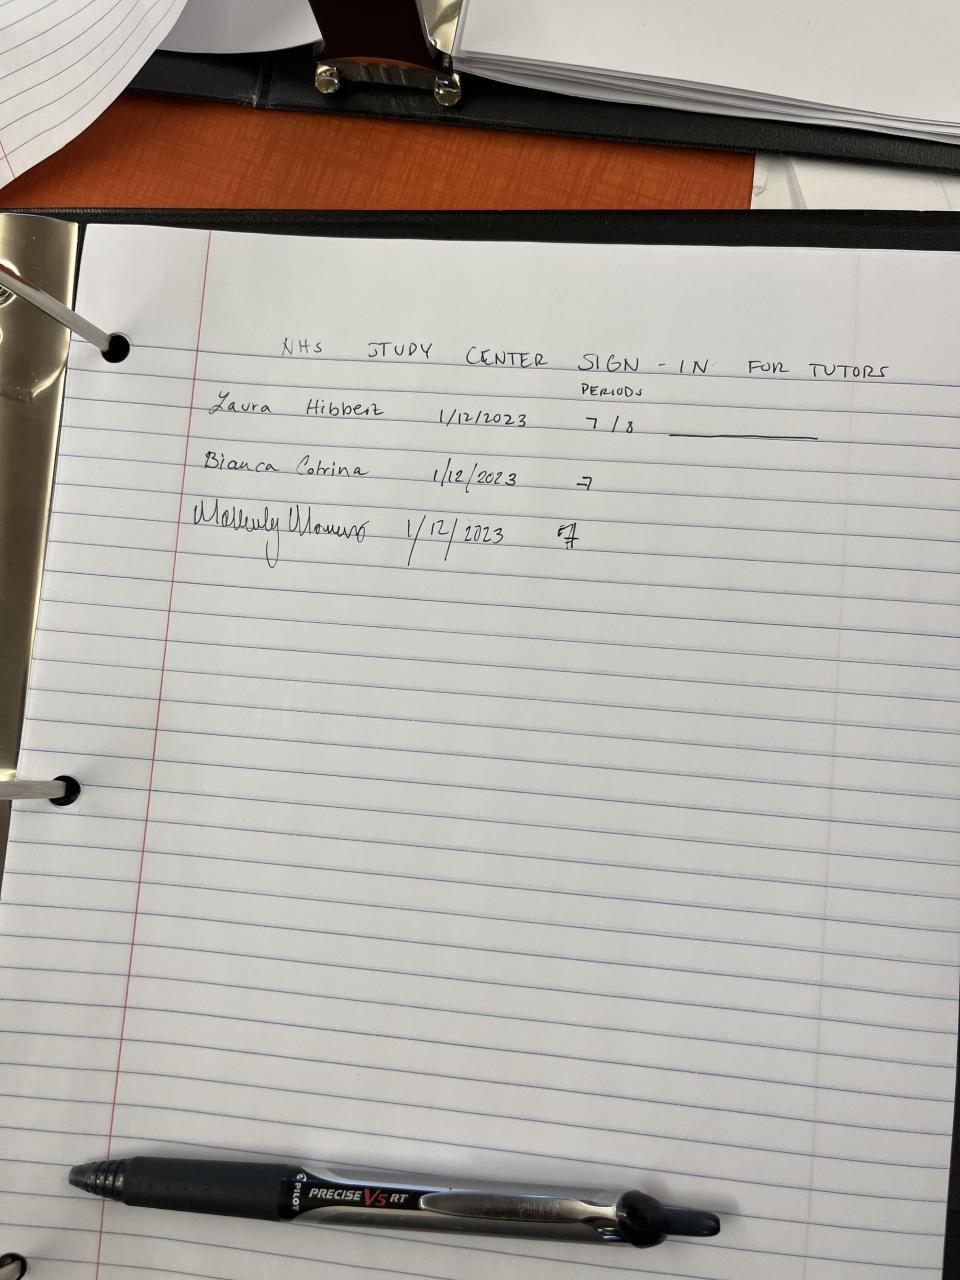 NHS STUDY CENTER SIGN-IN FOR TUTORS
PERIODS
Laura 1/12/2023 7/8
Bianca Cobrina 1/12/2023 7
1/12/2023 7
PILOT PRECISE V5 RT